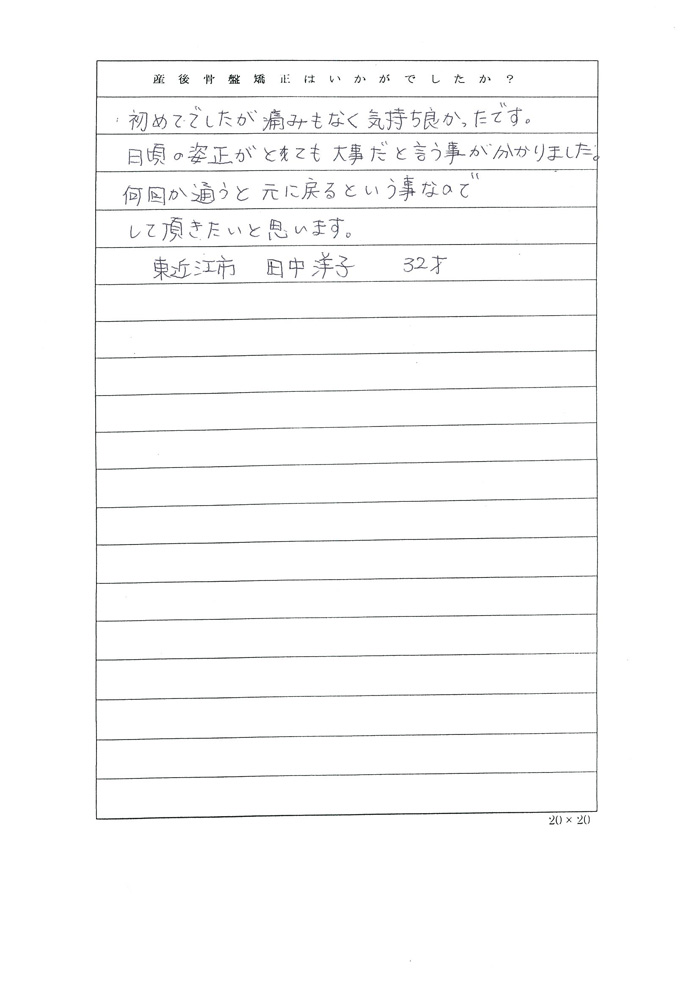 産後骨盤矯正はいかがでしたか？
初めてでしたが痛みもなく気持ち良かったです。
日頃の姿正がとれても大事だと言う事が分かりました。
何回か通うと元に戻るという事なので
して頂きたいと思います。
東近江市 田中洋子 32才
20×20